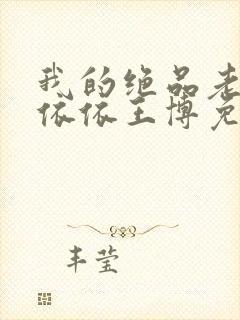 我的绝品老
依依王博免
丰莹